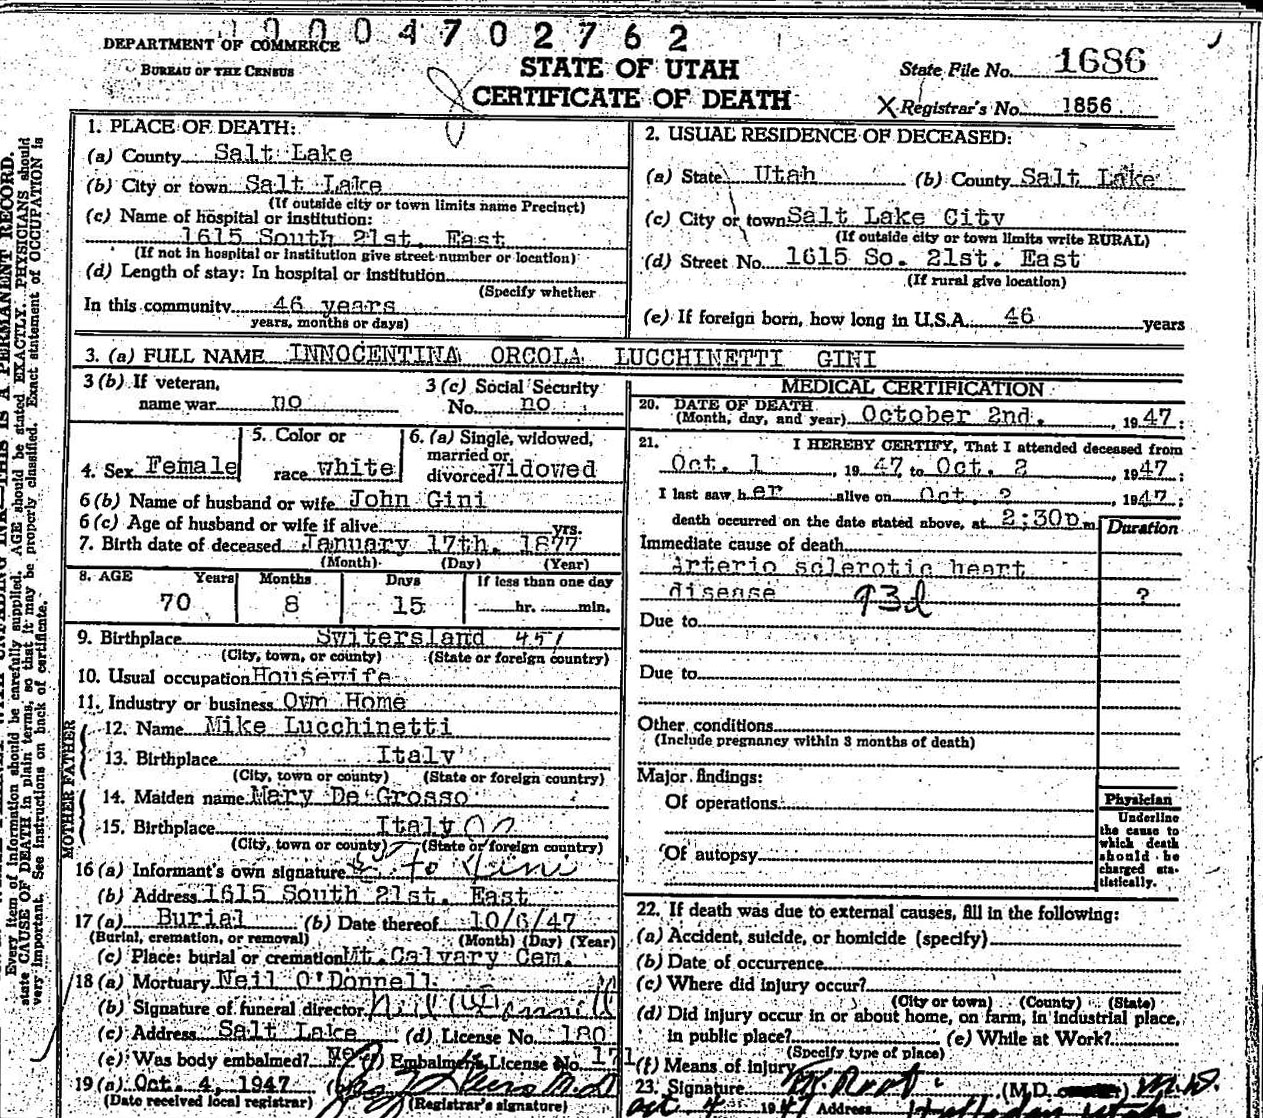 0004702762
DEPARTMENT OF COMMERCE
BUREAU OF THE CENSUS
STATE OF UTAH
CERTIFICATE OF DEATH
State File No. 1686
X Registrar's No. 1856
1. PLACE OF DEATH:
(a) County Salt Lake
(b) City or town Salt Lake
(If outside city or town limits name Precinct)
(c) Name of hospital or institution:
1615 South 21st. East
(If not in hospital or Institution give street number or location)
(d) Length of stay: In hospital or institution
(Specify whether
In this community 46 years
years, months or days)
2. USUAL RESIDENCE OF DECEASED:
(a) State Utah (b) County Salt Lake
(c) City or town Salt Lake City
(If outside city or town limits write RURAL)
(d) Street No. 1615 So. 21st. East
(If rural give location)
(e) If foreign born, how long in U.S.A. 46 years
3. (a) FULL NAME INNOCENTINA ORCOLA LUCCHINETTI GINI
3 (b) If veteran,
name war no
3 (c) Social Security
No. no
4. Sex Female
5. Color or
race white
6. (a) Single, widowed,
married or
divorced widowed
6 (b) Name of husband or wife John Gini
6 (c) Age of husband or wife if alive yrs.
7. Birth date of deceased January 17th. 1877
(Month) (Day) (Year)
8. AGE Years Months Days If less than one day
70 8 15 hr. min.
9. Birthplace Switersland 451
(City, town, or county) (State or foreign country)
10. Usual occupation Housewife
11. Industry or business Own Home
FATHER
12. Name Mike Lucchinetti
13. Birthplace Italy
(City, town or county) (State or foreign country)
MOTHER
14. Maiden name Mary De Grosso
15. Birthplace Italy
(City, town or county) (State or foreign country)
16 (a) Informant's own signature Gini
(b) Address 1615 South 21st. East
17 (a) Burial (b) Date thereof 10/6/47
(Burial, cremation, or removal) (Month) (Day) (Year)
(c) Place: burial or cremation Mt. Calvary Cem.
18 (a) Mortuary Neil O'Donnell
(b) Signature of funeral director Neil O'Donnell
(c) Address Salt Lake (d) License No. 180
(e) Was body embalmed? (f) Embalmer's License No. 171
19 (a) Oct. 4, 1947 (b)
(Date received local registrar) (Registrar's signature)
MEDICAL CERTIFICATION
20. DATE OF DEATH
(Month, day, and year) October 2nd. , 1947 :
21. I HEREBY CERTIFY, That I attended deceased from
Oct. 1 , 1947 to Oct. 2 , 1947 :
I last saw her alive on Oct. 2 , 1947 :
death occurred on the date stated above, at 2:30p m
Duration
Immediate cause of death
Arterio sclerotic heart
disease 93d ?
Due to
Due to
Other conditions
(Include pregnancy within 3 months of death)
Major findings:
Of operations
Of autopsy
Physician
Underline
the cause to
which death
should be
charged sta-
tistically.
22. If death was due to external causes, fill in the following:
(a) Accident, suicide, or homicide (specify)
(b) Date of occurrence
(c) Where did injury occur?
(City or town) (County) (State)
(d) Did injury occur in or about home, on farm, in industrial place,
in public place? (e) While at Work?
(Specify type of place)
(f) Means of injury
23. Signature (M.D. ) M.D.
Oct 4 1947 Address
Every item of information should be carefully supplied. AGE should be stated EXACTLY. PHYSICIANS should
state CAUSE OF DEATH in plain terms, so that it may be properly classified. Exact statement of OCCUPATION is
very important. See instructions on back of certificate.
UNFADING INK—THIS IS A PERMANENT RECORD.